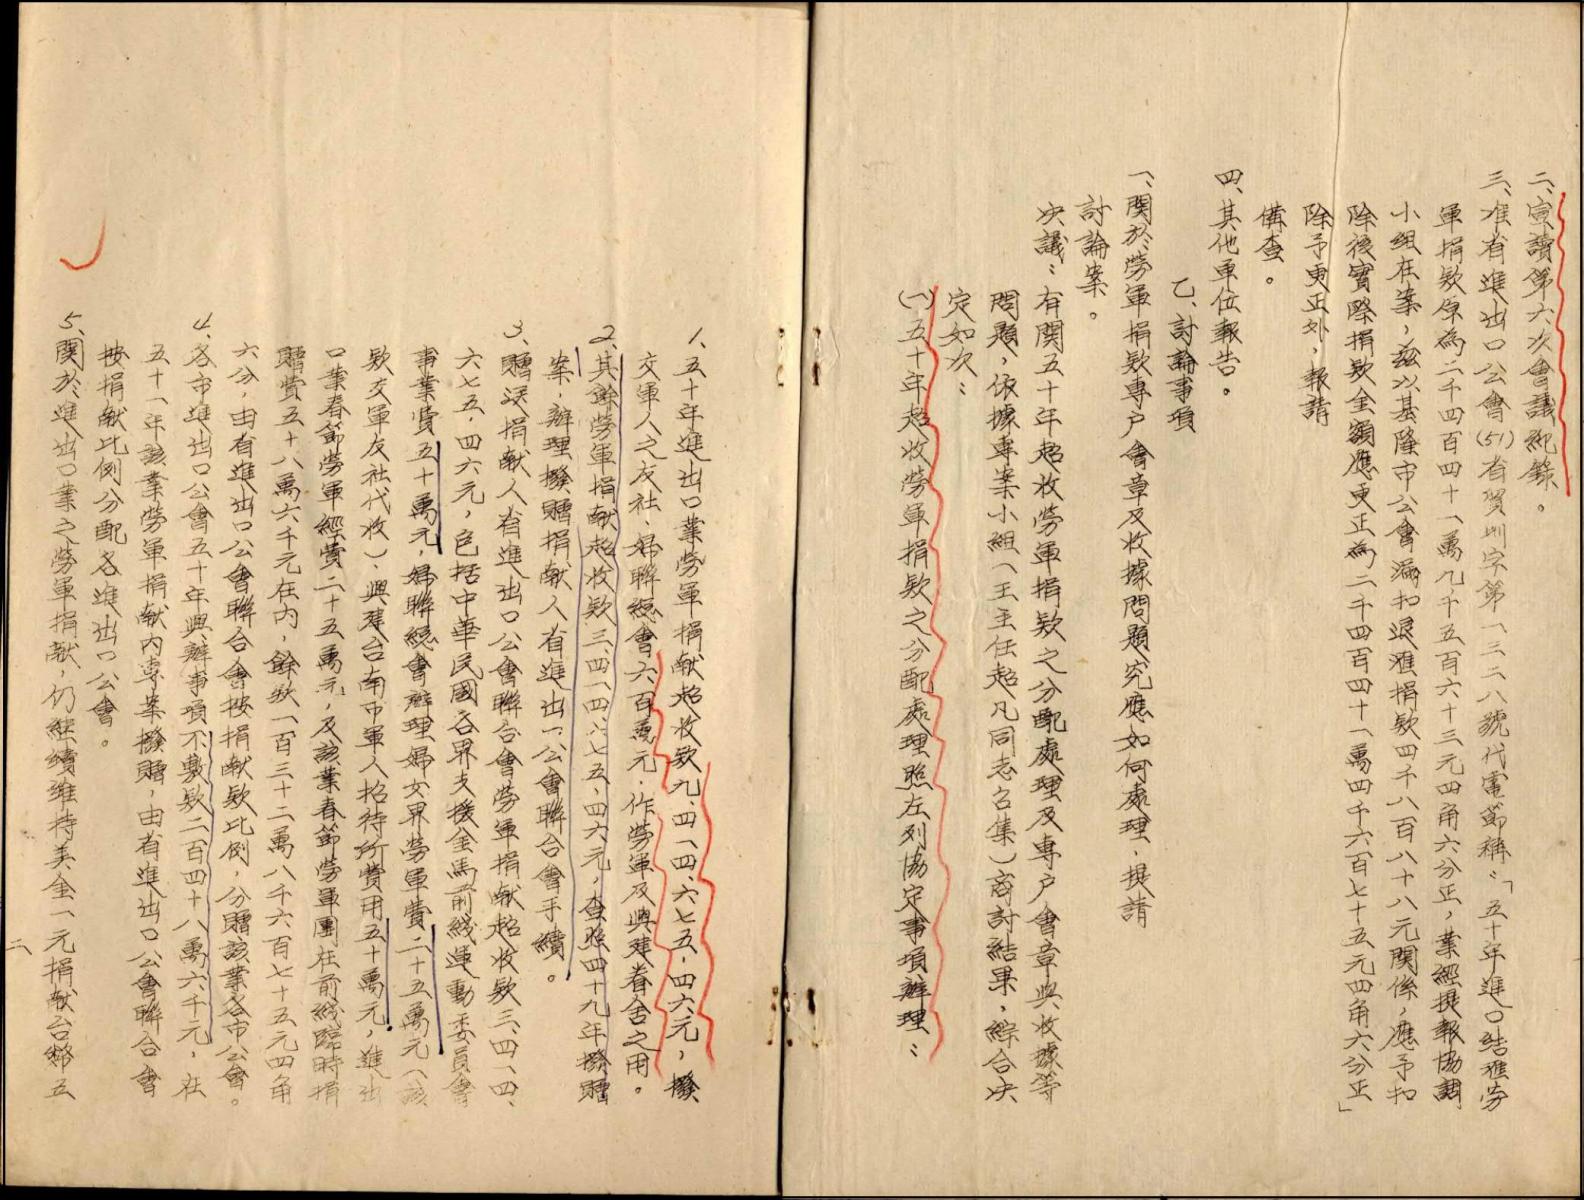 二、宣讀第六次會議紀錄。
三、准省進出口公會(51)省貿圳字第一三二八號代電節稱：「五十年進口結匯勞
軍捐欵原為二千四百四十一萬九千五百六十三元四角六分正，業經提報協調
小組在案，茲以基隆市公會漏扣退滙捐欵四千八百八十八元関係，應予扣
除後實際捐欵金額應更正為二千四百四十一萬四千六百七十五元四角六分正」
除予更正外，報請
備查。
四、其他單位報告。
乙、討論事項
一、関於勞軍捐欵專户會章及收據問題究應如何處理，提請
討論案。
决議：有関五十年超收勞軍捐欵之分配處理及專户會章與收據等
問題，依據專案小組（王主任超凡同志召集）商討結果，綜合决
定如次：
㈠五十年超收勞軍捐欵之分配處理照左列協定事項辦理：
1、五十年進出口業勞軍捐献超收欵九、四一四、六七五．四六元，撥
交軍人之友社、婦聯總會六百萬元，作勞軍及興建眷舍之用。
2、其餘勞軍捐献超收欵三、四一四、六七五．四六元，查照四十九年撥贈
案，辦理撥贈捐献人省進出口公會聯合會手續。
3、贈送捐献人省進出口公會聯合會勞軍捐献超收欵三、四一四、
六七五．四六元，包括中華民國各界支援金馬前綫運動委員會
事業費五十萬元，婦聯總會辦理婦女界勞軍費二十五萬元（該
欵交軍友社代收）、興建台南市軍人招待所費用五十萬元，進出
口業春節勞軍經費二十五萬元，及該業春節勞軍團在前綫臨時捐
贈費五十八萬六千元在內，餘欵一百三十二萬八千六百七十五元四角
六分，由省進出口公會聯合會按捐献欵比例，分贈該業各市公會。
4、各市進出口公會五十年興辦事項不敷欵二百四十八萬六千元，在
五十一年該業勞軍捐献內專案撥贈，由省進出口公會聯合會
按捐献比例分配各進出口公會。
5、関於進出口業之勞軍捐献，仍継續維持美金一元捐献台幣五
二、